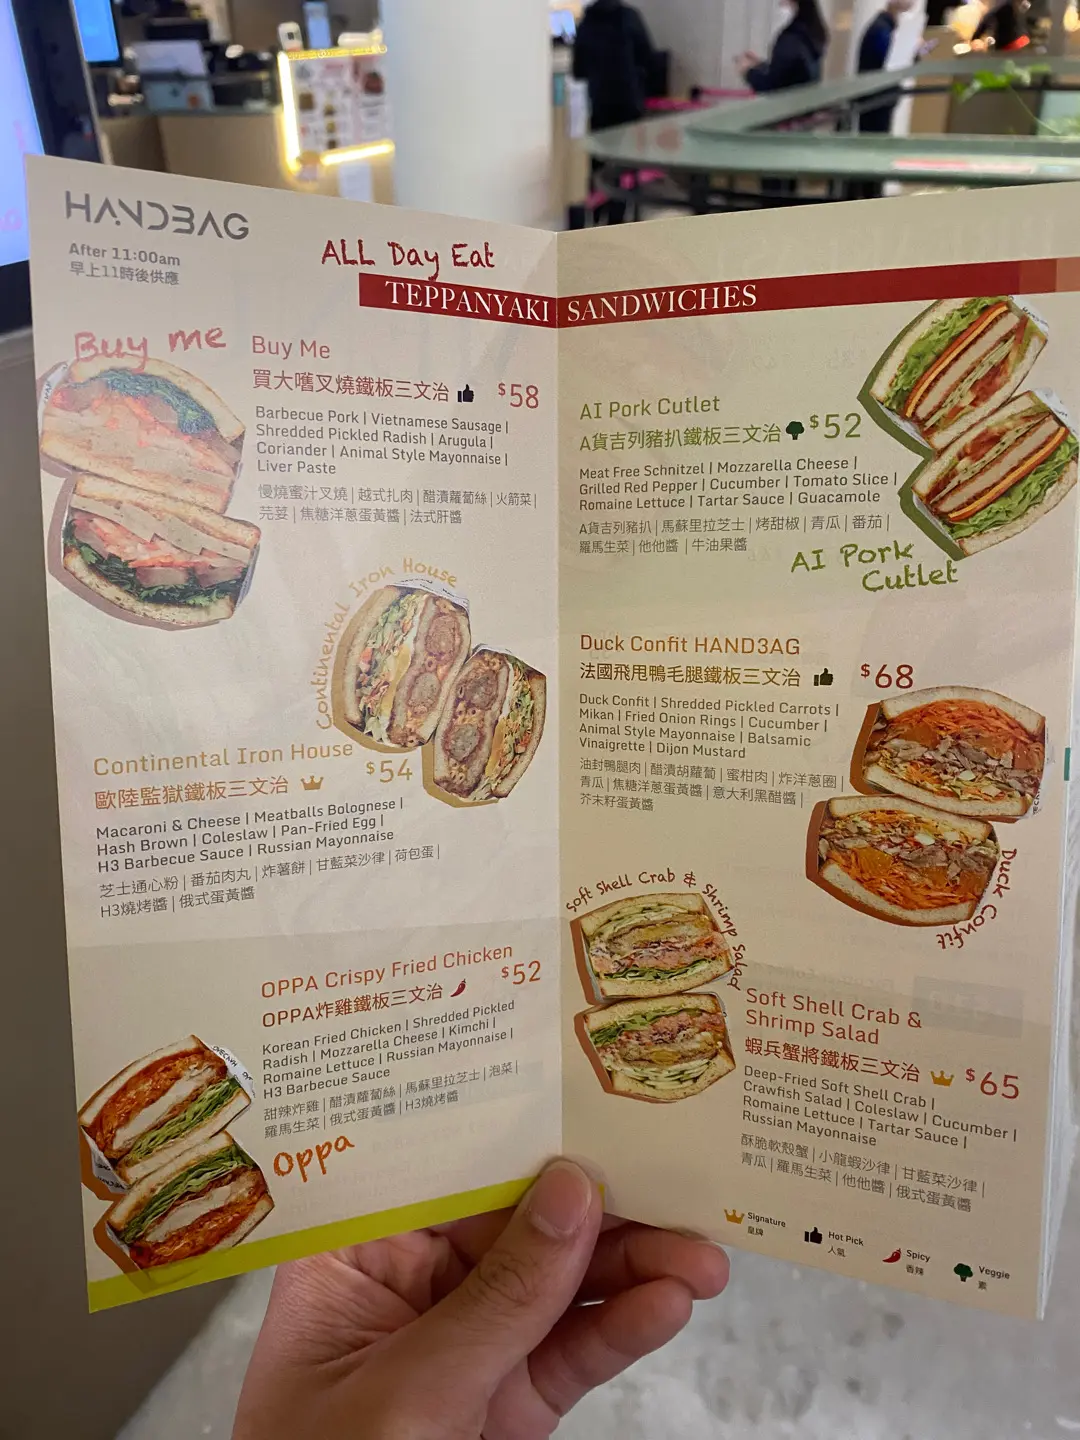 HAND3AG
After 11:00am
早上11時後供應
ALL Day Eat
TEPPANYAKI SANDWICHES
Buy me
Buy Me
買大嚿叉燒鐵板三文治 $58
Barbecue Pork | Vietnamese Sausage |
Shredded Pickled Radish | Arugula |
Coriander | Animal Style Mayonnaise |
Liver Paste
慢燒蜜汁叉燒 | 越式扎肉 | 醋漬蘿蔔絲 | 火箭菜 |
芫荽 | 焦糖洋蔥蛋黃醬 | 法式肝醬
Continental Iron House
Continental Iron House
歐陸監獄鐵板三文治 $54
Macaroni & Cheese | Meatballs Bolognese |
Hash Brown | Coleslaw | Pan-Fried Egg |
H3 Barbecue Sauce | Russian Mayonnaise
芝士通心粉 | 番茄肉丸 | 炸薯餅 | 甘藍菜沙律 | 荷包蛋 |
H3燒烤醬 | 俄式蛋黃醬
OPPA Crispy Fried Chicken
OPPA炸雞鐵板三文治 $52
Korean Fried Chicken | Shredded Pickled
Radish | Mozzarella Cheese | Kimchi |
Romaine Lettuce | Russian Mayonnaise |
H3 Barbecue Sauce
甜辣炸雞 | 醋漬蘿蔔絲 | 馬蘇里拉芝士 | 泡菜 |
羅馬生菜 | 俄式蛋黃醬 | H3燒烤醬
Oppa
AI Pork Cutlet
A貨吉列豬扒鐵板三文治 $52
Meat Free Schnitzel | Mozzarella Cheese |
Grilled Red Pepper | Cucumber | Tomato Slice |
Romaine Lettuce | Tartar Sauce | Guacamole
A貨吉列豬扒 | 馬蘇里拉芝士 | 烤甜椒 | 青瓜 | 番茄 |
羅馬生菜 | 他他醬 | 牛油果醬
AI Pork
Cutlet
Duck Confit HAND3AG
法國飛甩鴨毛腿鐵板三文治 $68
Duck Confit | Shredded Pickled Carrots |
Mikan | Fried Onion Rings | Cucumber |
Animal Style Mayonnaise | Balsamic
Vinaigrette | Dijon Mustard
油封鴨腿肉 | 醋漬胡蘿蔔 | 蜜柑肉 | 炸洋蔥圈 |
青瓜 | 焦糖洋蔥蛋黃醬 | 意大利黑醋醬 |
芥末籽蛋黃醬
Duck Confit
Soft Shell Crab & Shrimp Salad
Soft Shell Crab &
Shrimp Salad
蝦兵蟹將鐵板三文治 $65
Deep-Fried Soft Shell Crab |
Crawfish Salad | Coleslaw | Cucumber |
Romaine Lettuce | Tartar Sauce |
Russian Mayonnaise
酥脆軟殼蟹 | 小龍蝦沙律 | 甘藍菜沙律 |
青瓜 | 羅馬生菜 | 他他醬 | 俄式蛋黃醬
Signature
皇牌
Hot Pick
人氣
Spicy
香辣
Veggie
素